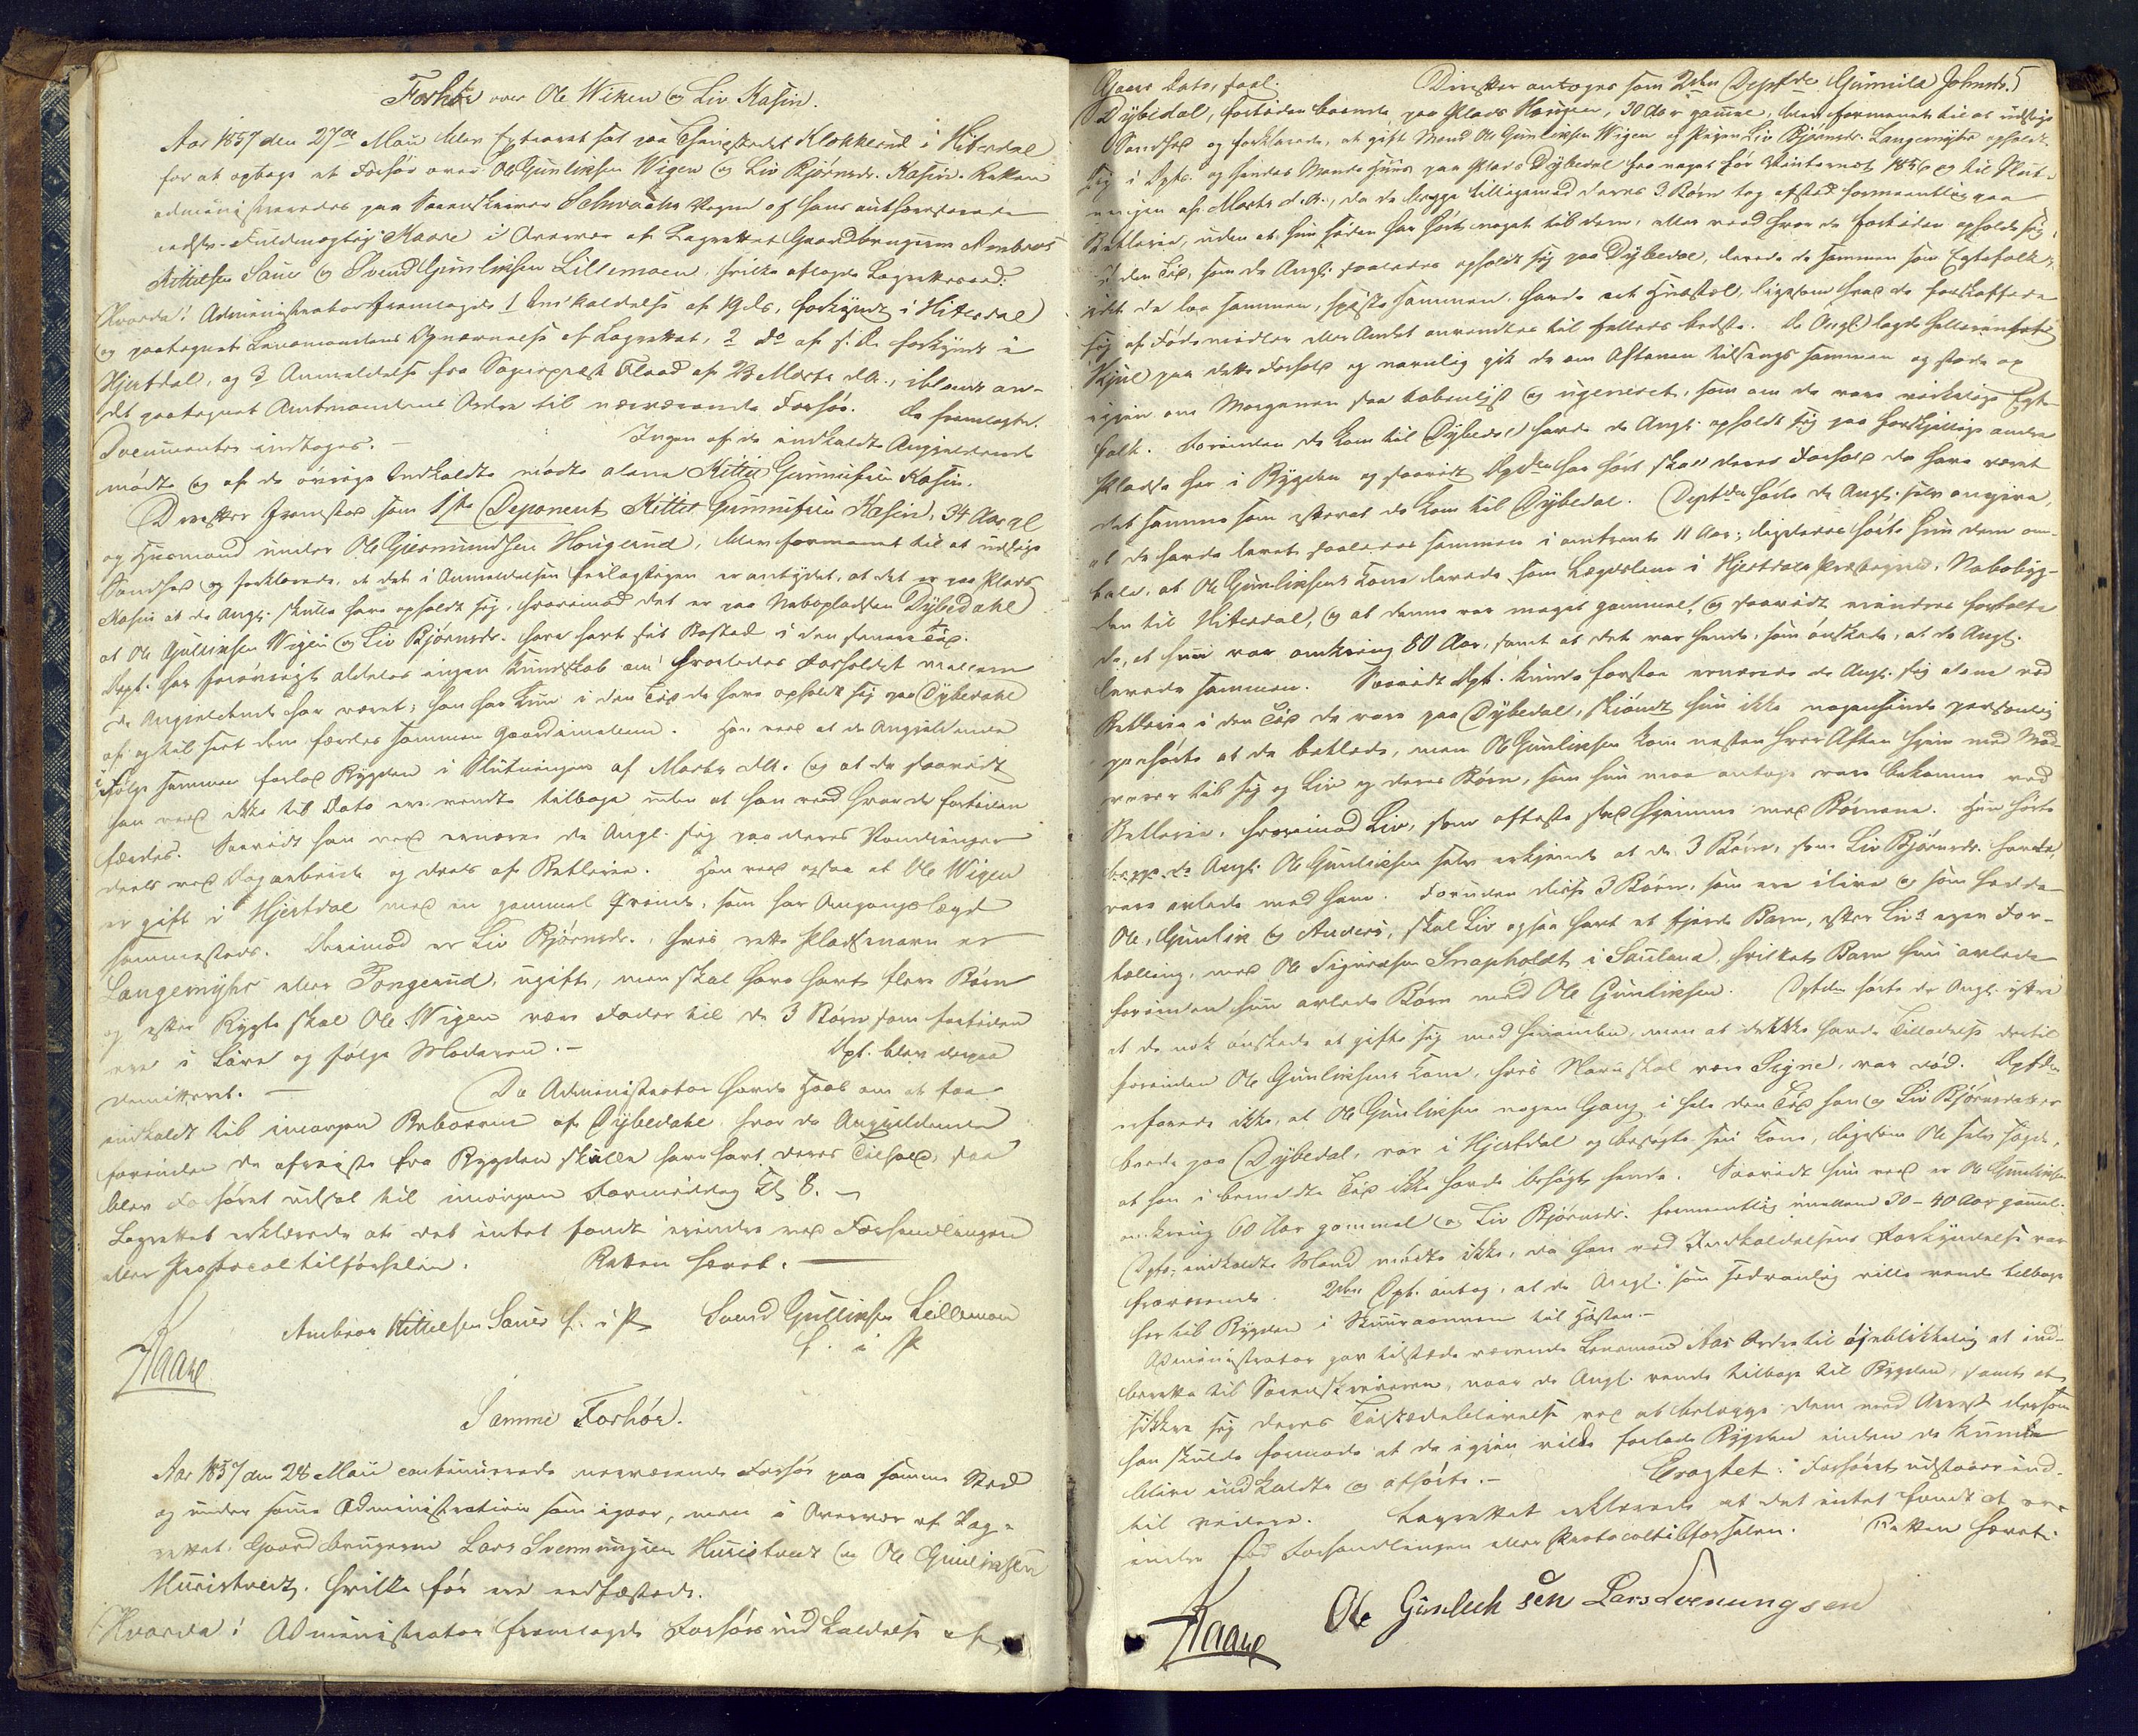 Forhør over Ole Wiken og Liv Kasin.
Aar 1857 den 27de Mai blev Extraret sat paa Thinghstedet Klokkerud i Hiterdal
for at optage et Forhør over Ole Gunliksen Wigen og Liv Bjørnsdr. Kasin. Retten
administreredes paa Sorenskriver Schwachs Vegne af hans authoriserede
edsv. Fuldmægtig Kaare i Overvær af Lagrettet Gaardbrugerne Ambros
Kittilsen Sauer og Svend Gunliksen Lillemoen, hvilke aflagde Lagretteseed.
Hvorda! Administrator fremlagde 1 Indkaldelse af 19 ds, forkyndt i Hiterdal
og paategnet Lensmandens Opnævnelse af Lagrettet, 2 do af s. D. forkyndt i
Hjertdal, og 3 Anmeldelse fra Sognepræst Flood af 23 Marts d.A., iblandt an-
det paategnet Amtmandens Ordre til nærværende Forhør. De fremlagte
Documenter indtages. — Ingen af de indkaldte Angjeldende
mødte og af de øvrige Indkaldte mødte alene Kittil Gunnufsen Kasin.
Derefter fremstod som 1ste Deponent Kittil Gunnufsen Kasin, 34 Aar gl
og Huusmand under Ole Giermundsen Haugerud, blev formanet til at udsige
Sandhed og forklarede, at det i Anmeldelsen feilagtigen er antydet, at det er paa Plads
Kasin at de Angj. skulle have opholdt sig, hvorimod det er paa Nabopladsen Dybedahl
at Ole Gulliksen Wigen og Liv Bjørnsdr. have havt sit Bosted i den senere Tid.
Dept. har forøvrigt aldeles ingen Kundskab om hvorledes Forholdet mellem
de Angjeldende har været; han har kun i den Tid de have opholdt sig paa Dybedahl
af og til seet dem færdes sammen gaardimellem. Han veed at de Angjeldende
ifølge sammen forlod Bygden i Slutningen af Marts d.A. og at de saavidt
han veed ikke til Dato ere vendte tilbage uden at han veed hvor de fortiden
færdes. Saavidt han veed ernærer de Angj. sig paa deres Vandringer
deels ved Dagarbeide og deels af Betlerie. Han veed ogsaa at Ole Wigen
er gift i Hjertdal med en gammel Qvinde, som har Omgangslægd
sammesteds. Derimod er Liv Bjørnsdr., hvis rette Pladsnavn er
Langemyhr eller Tongerud, ugift, men skal have havt flere Børn
og efter Rygte skal Ole Wigen være Fader til de 3 Børn som fortiden
ere i Live og følge Moderen. — Dpt. blev derpaa
demitteret. — Da Administrator havde Haab om at faa
indkaldt til imorgen Beboerne af Dybedahl hvor de Angjeldende
forinden de afreiste fra Bygden skulle have havt deres Tilhold, saa
blev Forhøret udsat til imorgen Formiddag Kl 8. —
Lagrettet erklærede at det intet fandt erindre ved Forhandlingen
eller Protocoltilførselen. Retten hævet. —
Ambros Kittilsen Sauer h. i P. Svend Gulliksen Lillemoen
Kaare h. i P
Samme Forhør.
Aar 1857 den 28 Mai continuerede nærværende Forhør paa samme Sted
og under samme Administration som igaar, men i Overvær af Lag-
rettet Gaardbrugerne Lars Svennungsen Hueistvedt og Ole Gunliksen
Hueistvedt, hvilke før ere eedfæstede.
Hvorda! Administrator fremlagde Forhørsindkaldelse af
Gaars Dato, saal. Derefter antoges som 2den Dept.de Gunnild Johnsdr. 5
Dybedal, fortiden boende paa Plads Haugen, 30 Aar gammel, blev formanet til at udsige
Sandhed og forklarede, at gift Mand Ole Gunliksen Wigen og Pigen Liv Bjørnsdr. Langemyhr opholdt
sig i Dpts. og hendes Mands Huus paa Plads Dybedal fra noget før Winternat 1856 og til Slut-
ningen af Marts d.A., da de begge tilligemed deres 3 Børn tog afsted formeentlig paa
Betlerie, uden at hun siden har hørt noget til dem, eller veed hvor de fortiden opholde sig.
I den Tid, som de Angj. saaledes opholdt sig paa Dybedal, levede de sammen som Egtefolk,
idet de laae sammen, spiste sammen, havde eet Huushold, ligesom hvad de forskaffede
sig af Fødemidler eller Andet anvendtes til fælleds bedste. De Angj. lagde hellerikke
Skjul paa dette Forhold og navnlig gik de om Aftenen tilsengs sammen og stode op
igjen om Morgenen saa aabenlyst og ugeneret, som om de vare virkelige Egte-
folk. Forinden de kom til Dybedal havde de Angj. opholdt sig paa forskjellige andre
Pladse her i Bygden og saavidt Dptden har hørt skal deres Forhold da have været
det samme som efterat de kom til Dybedal. Deptden hørte de Angj. selv angive,
at de havde levet saaledes sammen i omtrent 11 Aar; ligeledes hørte hun dem om-
tale, at Ole Gunliksens Kone levede som Lægdslem i Hjertdals Præstegjeld, Nabobyg-
den til Hiterdal, og at denne var meget gammel, og saavidt erindres fortalte
de, at hun var omkring 80 Aar, samt at det var hende, som ønskede, at de Angj.
levede sammen. Saavidt Dpt. kunde forstaa ernærede de Angj. sig alene ved
Betlerie i den Tid de vare paa Dybedal, skjøndt hun ikke nogensinde personlig
paahørte at de betlede, men Ole Gunliksen kom næsten hver Aften hjem med Mad-
varer til sig og Liv og deres Børn, som hun maa antage vare bekomne ved
Betlerie, hvorimod Liv, som oftest sad hjemme med Børnene. Hun hørte
begge de Angj. Ole Gunliksen selv erkjende at de 3 Børn, som Liv Bjørnsdr. havde,
vare avlede med ham. Foruden disse 3 Børn, som ere ilive og som hedde
Ole, Gunlik og Anders, skal Liv ogsaa havt et fjerde Barn, efter Livs egen For-
tælling, med Ole Sigurdsen Snapholdt i Sauland, hvilket Barn hun avlede
forinden hun avlede Børn med Ole Gunliksen. Dptden hørte de Angj. yttre
at de nok ønskede at gifte sig med hinanden, men at de ikke havde Tilladelse dertil
forinden Ole Gunliksens Kone, hvis Navn skal være Signe, var død. Dptden
erfarede ikke, at Ole Gunliksen nogen Gang i hele den Tid han og Liv Bjørnsdatter
boede paa Dybedal, var i Hjertdal og besøgte sin Kone, ligesom Ole selv sagde,
at han i bemeldte Tid ikke havde besøgt hende. Saavidt hun veed er Ole Gunliksen
omkring 60 Aar gammel og Liv Bjørnsdr. formeentlig imellem 30–40 Aar gammel.
Dpts. indkaldte Mand mødte ikke, da han ved Indkaldelsens Forkyndelse var
fraværende. 2den Dpt. antog, at de Angj. som sædvanlig ville vende tilbage
her til Bygden i Skuuraannen til Høsten. —
Administrator gav tilstedeværende Lensmand Aas Ordre til øjeblikkelig at ind-
berette til Sorenskriveren, naar de Angj. vende tilbage til Bygden, samt at
sikkre sig deres Tilstædeblivelse ved at belægge dem med Arrest dersom
han skulde formode at de igjen vilde forlade Bygden inden de kunde
blive indkaldte og afhørte. — Eragtet: Forhøret udstaaer ind-
til videre. Lagrettet erklærede at det intet fandt at er-
indre ved Forhandlingen eller Protocoltilførselen. Retten hævet.
Kaare Ole Gunleck sen Lars Svenungsen